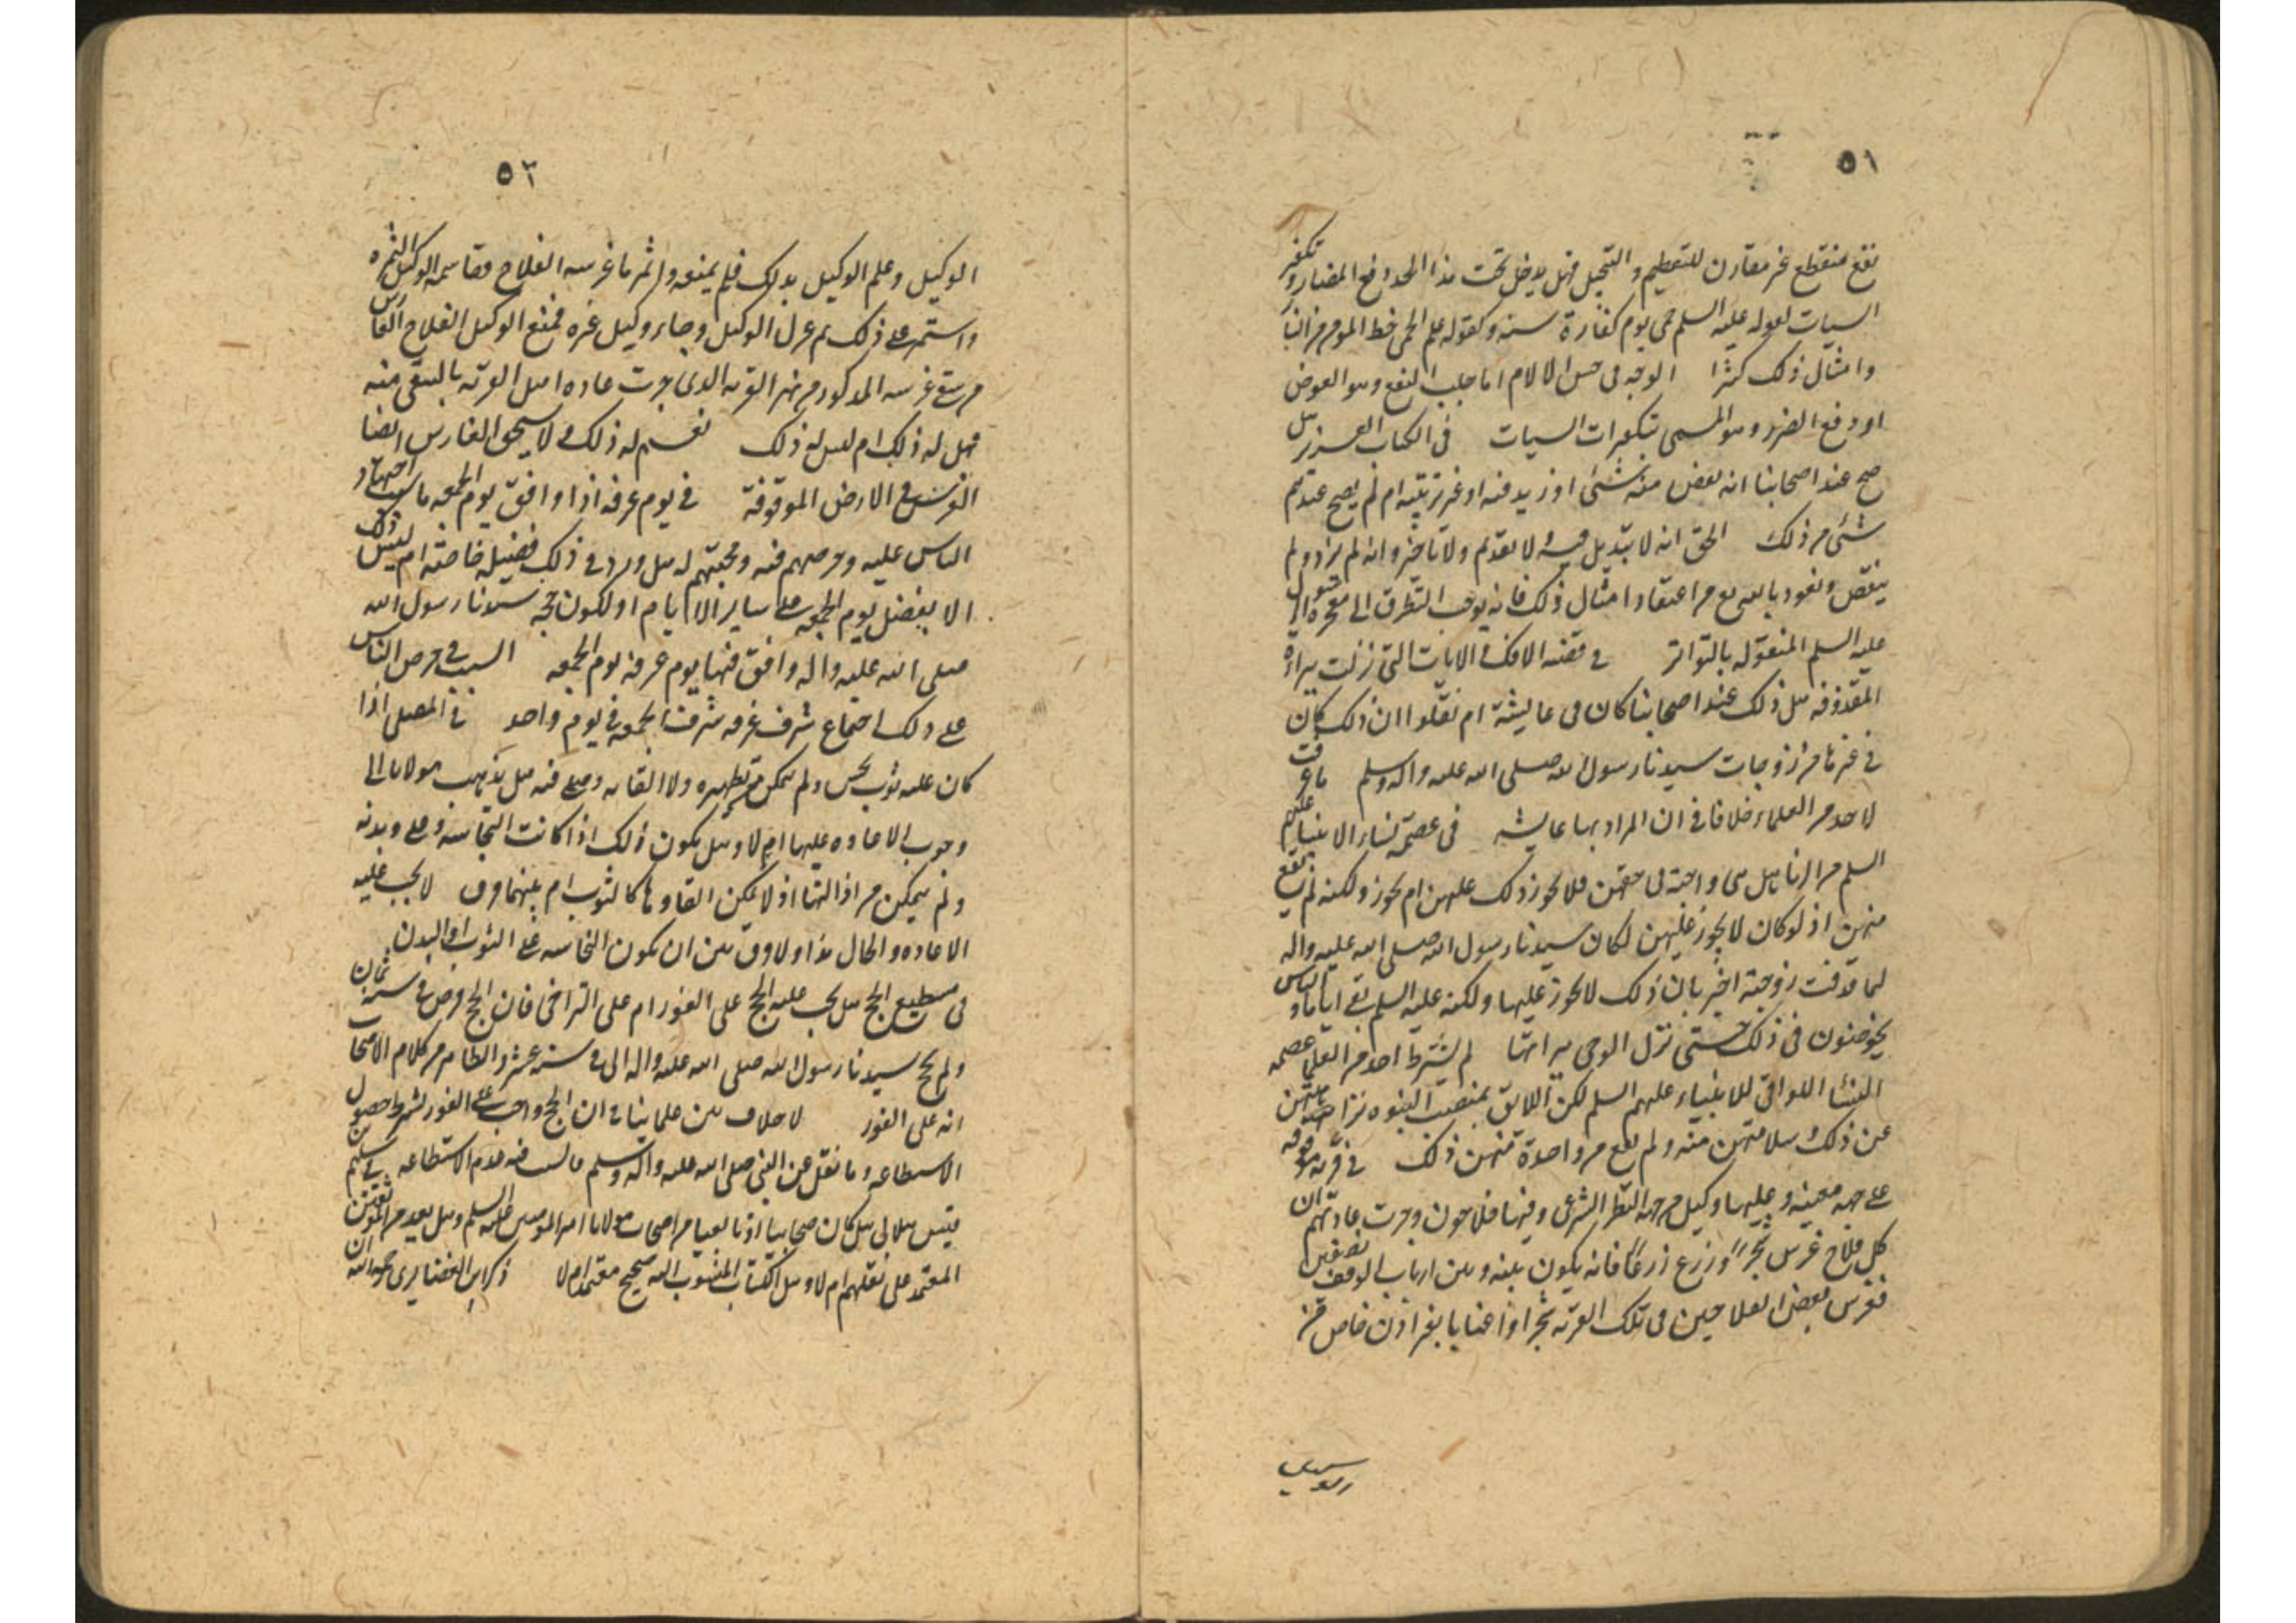 ٥١
نفع منقطع غير مقارن للتعظيم والتبجيل فهل يدخل تحت هذا الحد دفع المضار وتكفير
السيات لقوله عليه السلم حمى يوم كفارة سنة وكقوله علم الحمى حظ المومن من النار
وامثال ذلك كثيرا الوجه فى حسن الالام اما جلب النفع وهو العوض
او دفع الضرر وهو المسمى بتكفيرات السيات فى الكتاب العزيز هل
صح عند اصحابنا انه نقص منه شئى او زيد فيه او غير ترتيبه ام لم يصح عندهم
شئى من ذلك الحق انه لا تبديل فيه ولا تقديم ولا تاخير وانه لم يزد ولم
ينقص ونعوذ بالله من اعتقاد امثال ذلك فانه يوجب التطرق الى معجزة الرسول
عليه السلم المنقوله بالتواتر فى قصه الافك الايات التى نزلت ببراءة
المقذوفه هل ذلك عند اصحابنا كان فى عايشة ام نقلوا ان ذلك كان
فى غيرها من زوجات سيدنا رسول الله صلى الله عليه واله وسلم ما عرفت
لاحد من العلماء خلافا فى ان المراد بها عايشه فى عصمة نساء الانبياء عليهم
السلم من الزنا هل هى واجبة فى حقهن فلا يجوز ذلك عليهن ام يجوز ولكنه لم يقع
منهن اذ لو كان لا يجوز عليهن لكان سيدنا رسول الله صلى الله عليه واله
لما قذفت زوجته اخبر بان ذلك لا يجوز عليها ولكنه عليه السلم بقى اياما والناس
يخوضون فى ذلك حتى نزل الوحى ببرائتها لم يشترط احد من العلما عصمه
النسا اللواتى للانبياء عليهم السلم لكن اللائق بمنصب النبوه نزاهتهن
عن ذلك وسلامتهن منه ولم يقع من واحدة منهن ذلك فى قريه موقوفه
على جهه معينه وعليها وكيل من جهه النظر الشرعى وفيها فلاحون وجرت عادتهم ان
كل فلاح غرس شجرا او زرع زرعا فانه يكون بينه وبين ارباب الوقف نصفين
فغرس بعض الفلاحين فى تلك القريه شجرا واعنابا بغير اذن خاص من
٥٢
الوكيل وعلم الوكيل بذلك فلم يمنعه واثمر ما غرسه الفلاح وقاسمه الوكيل الثمره
واستمر على ذلك ثم عزل الوكيل وجاء وكيل غيره فمنع الوكيل الفلاح الغارس
من سقى غرسه المذكور من نهر القريه الذى جرت عاده اهل القريه بالسقى منه
فهل له ذلك ام ليس له ذلك نعم له ذلك ولا يستحق الغارس ايضا
الغرس فى الارض الموقوفة فى يوم عرفه اذا وافق يوم الجمعه ما سبب اجتهاد
الناس عليه وحرصهم فيه ومحبتهم له هل ورد فى ذلك فضيله خاصة ام ليس ذلك
الا بفضل يوم الجمعه على ساير الايام او لكون حجة سيدنا رسول الله
صلى الله عليه واله وافق فيها يوم عرفه يوم الجمعه السبب فى حرص الناس
على ذلك اجتماع شرف عرفه وشرف الجمعه فى يوم واحد فى المصلى اذا
كان عليه ثوب نجس ولم يتمكن من تطهيره ولا القائه وصلى فيه هل يذهب مولانا الى
وجوب الاعاده عليها ام لا وهل يكون ذلك اذا كانت النجاسه فى بدنه
ولم يتمكن من ازالتها اذ لا يمكن القاوها كالثوب ام بينهما فرق لا يجب عليه
الاعاده والحال هذا ولا فرق بين ان يكون النجاسه على الثوب او البدن
فى مستطيع الحج هل يجب عليه الحج على الفور ام على التراخى فان الحج فرض فى سنه ثمان
ولم يحج سيدنا رسول الله صلى الله عليه واله الا فى سنه عشر والظاهر من كلام الاصحاب
انه على الفور لا خلاف بين علماينا فى ان الحج واجب على الفور بشرط حصول
الاستطاعه وما نقل عن النبى صلى الله عليه واله وسلم فالسبب فيه عدم الاستطاعه فى سليم بن
قيس الهلالى هل كان صحابيا او تابعيا من اصحاب مولانا امير المومنين عليه السلم وهل يعد من الموثقين
المعتمد على نقلهم ام لا وهل الكتاب المنسوب اليه صحيح معتمد ام لا ذكر ابن الغضايرى رحمه الله ان